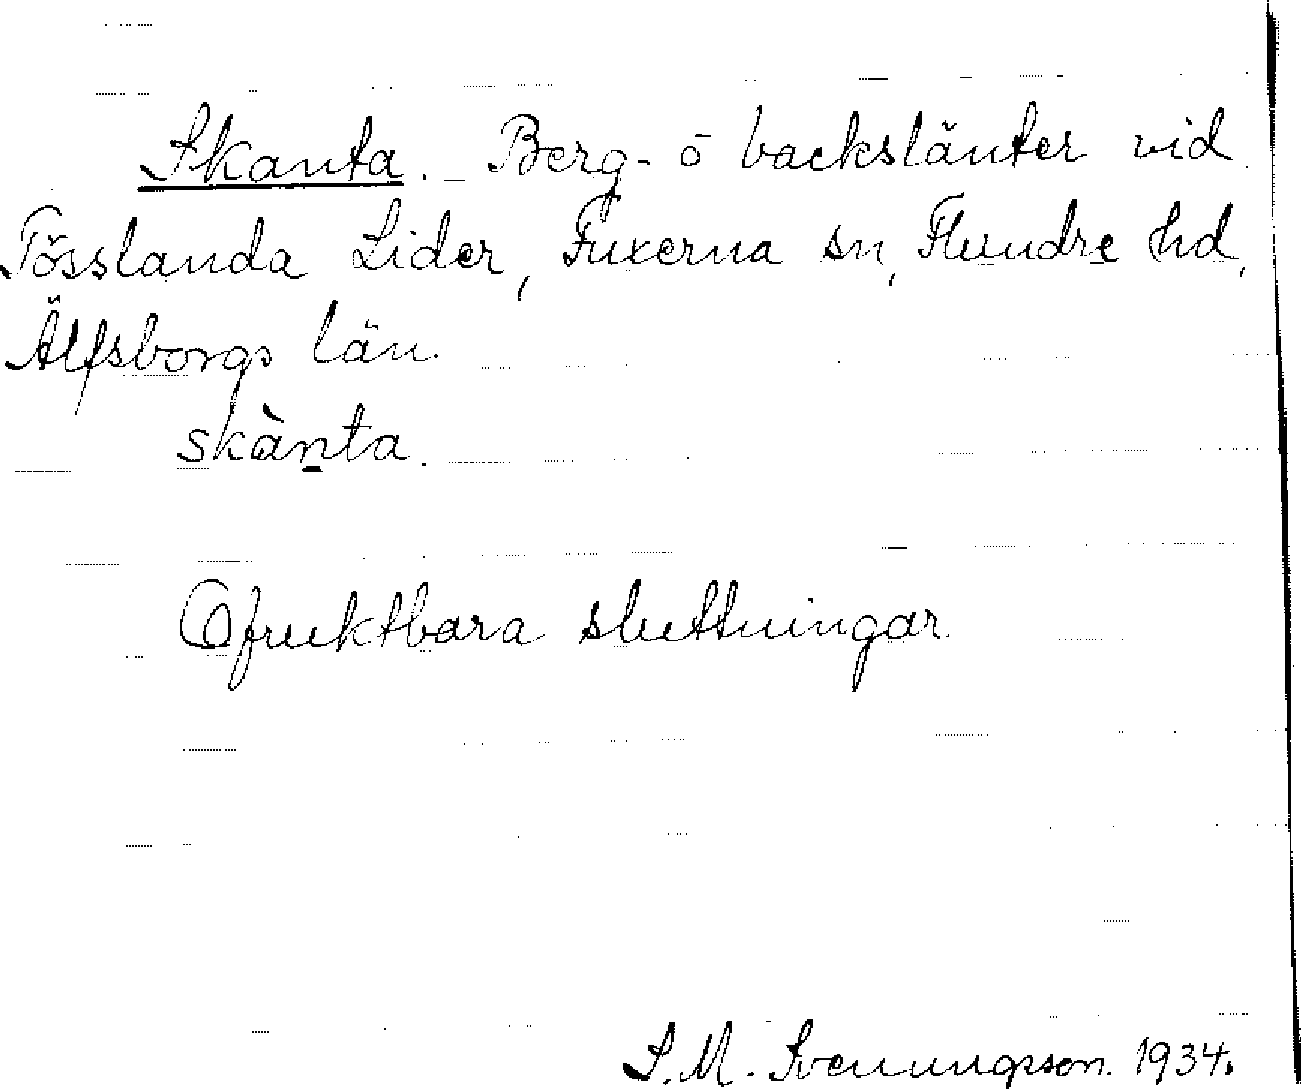 Skanta. Berg- o backslänter vid
Tösslanda Lider, Fuxerna sn, Flundre hd,
Älfsborgs län.
skànta.
Ofruktbara sluttningar.
S. M. Svenungsson. 1934.